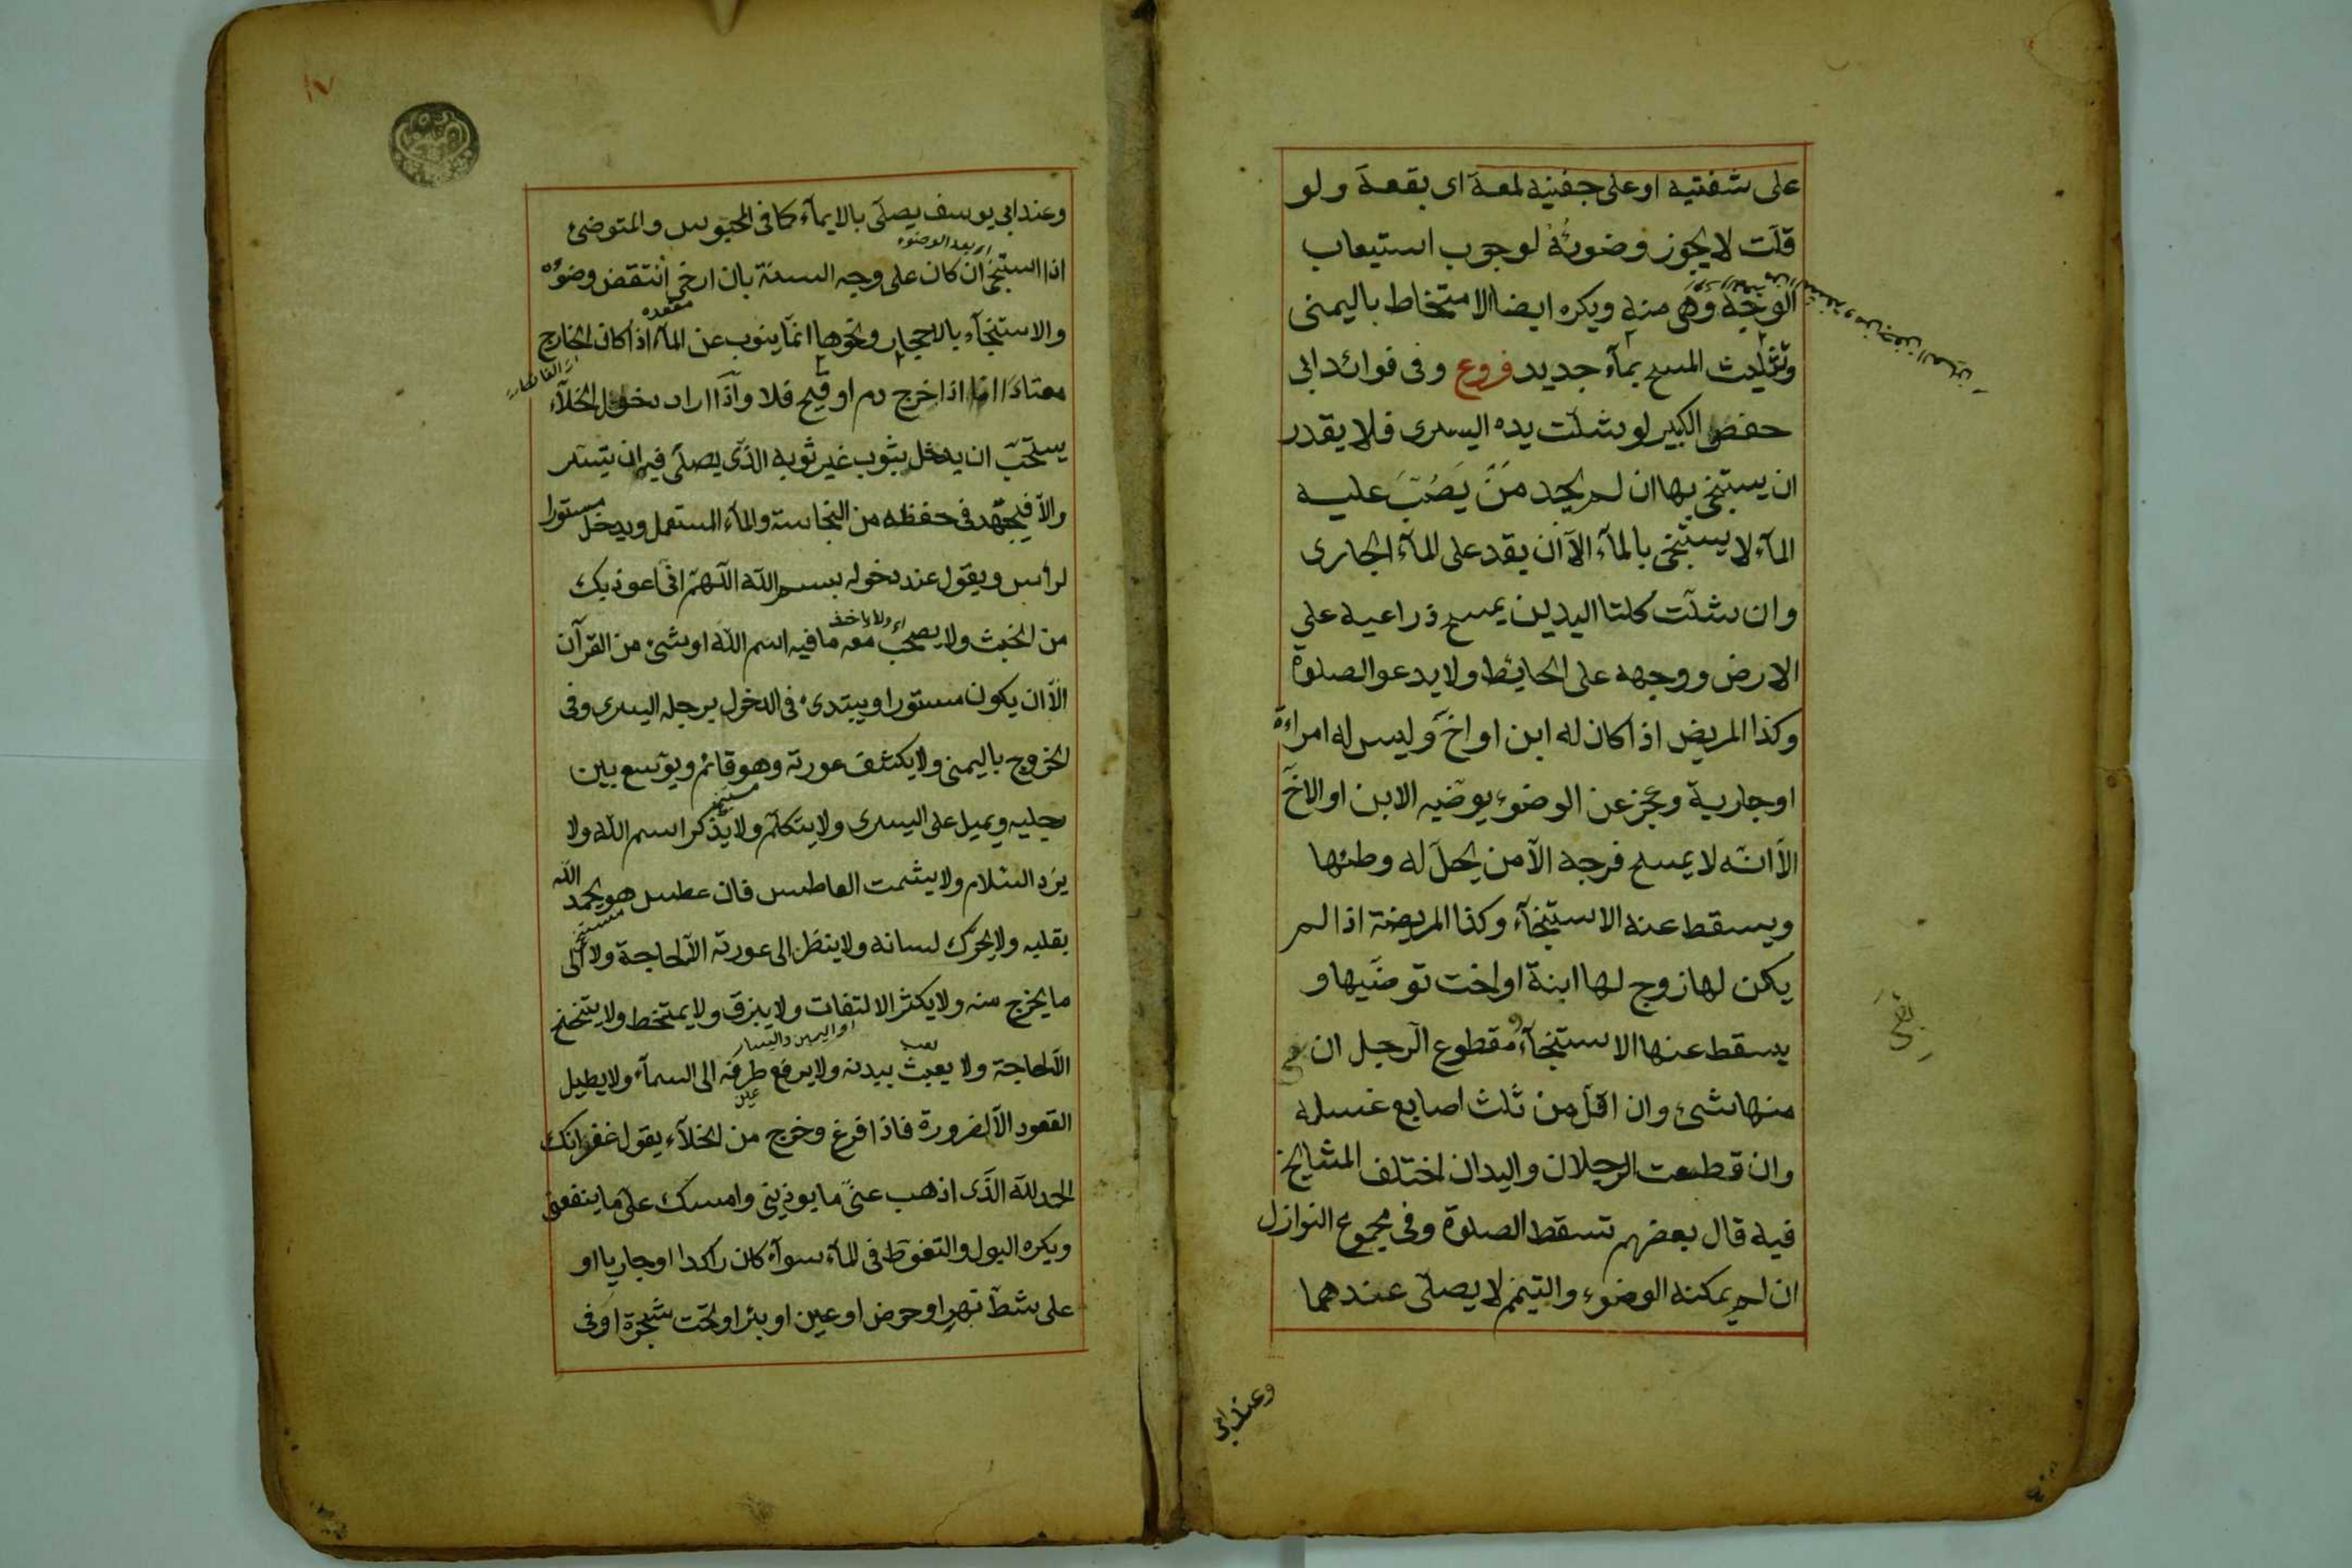 على شفتيه او على جفنيه لمعة اى بقعة ولو
قلت لا يجوز وضوئه لوجوب استيعاب
الوجه وهى منه ويكره ايضا الامتخاط باليمنى
وتثليث المسح بمآء جديد فروع وفى فوائد ابى
حفص الكبير لو شلت يده اليسرى فلا يقدر
ان يستنجى بها ان لم يجد من يصب عليه
المآء لا يستنجى بالمآء الا ان يقد على المآء الجارى
وان شلت كلتا اليدين يمسح ذراعيه على
الارض ووجهه على الحايط ولا يدعو الصلوة
وكذا المريض اذا كان له ابن او اخ وليس له امراءة
او جارية وعجز عن الوضوء يوضيه الابن او الاخ
الا انه لا يمسح فرجه الا من يحل له وطئها
ويسقط عنه الاستنجآء وكذا المريضة اذا لم
يكن لها زوج لها ابنة او اخت توضيها و
يسقط عنها الاستنجآء ومقطوع الرجل ان بقى
بقى
منها شئ وان اقل من ثلث اصابع غسله
وان قطعت الرجلان واليدان اختلف المشايخ
فيه قال بعضهم تسقط الصلوة وفى مجموع النوازل
ان لم يمكنه الوضوء والتيمم لا يصلى عندهما
وعند ابى
١٧
وعند ابى يوسف يصلى بالايمآء كما فى المحبوس والمتوضئ
اى بعد الوضوء
اذا استنجى ان كان على وجه السنة بان ارخى انتقض وضوءه
مقعده
والاستنجآء بالاحجار ونحوها انما ينوب عن المآء اذا كان الخارج
معتادا اما اذا خرج دم او قيح فلا واذا اراد دخول الخلآء
يستحب ان يدخل بثوب غير ثوبه الذى يصلى فيه ان تيسر
والا فيجتهد فى حفظه من النجاسة والمآء المستعمل ويدخل مستورا
لراس ويقول عند دخوله بسم الله اللهم انى اعوذ بك
اى ولا ياخذ
من الخبث ولا يصحب معه ما فيه اسم الله او شئ من القرآن
الا ان يكون مستورا ويبتدئ فى الدخول برجله اليسرى وفى
لخروج باليمنى ولا يكشف عورته وهو قائم ويوسع بين
مستنجى
رجليه ويميل على اليسرى ولا يتكلم ولا يذكر اسم الله ولا
يرد السلام ولا يشمت العاطس فان عطس هو يحمد الله
مستنجى
بقلبه ولا يحرك لسانه ولا ينظر الى عورته الا لحاجة ولا الى
ما يخرج منه ولا يكثر الالتفات ولا يبزق ولا يمتخط ولا يتنحنح
او اليمين واليسار
الا لحاجة ولا يعبث ببدنه ولا يرفع طرفه الى السمآء ولا يطيل
عين
القعود الا لضرورة فاذا فرغ وخرج من الخلآء يقول غفرانك
الحمد لله الذى اذهب عنى ما يوذينى وامسك على ما ينفعنى
ويكره البول والتغوط فى المآء سوآء كان راكدا او جاريا او
على شط نهر او حوض او عين او بئر او تحت شجرة او فى